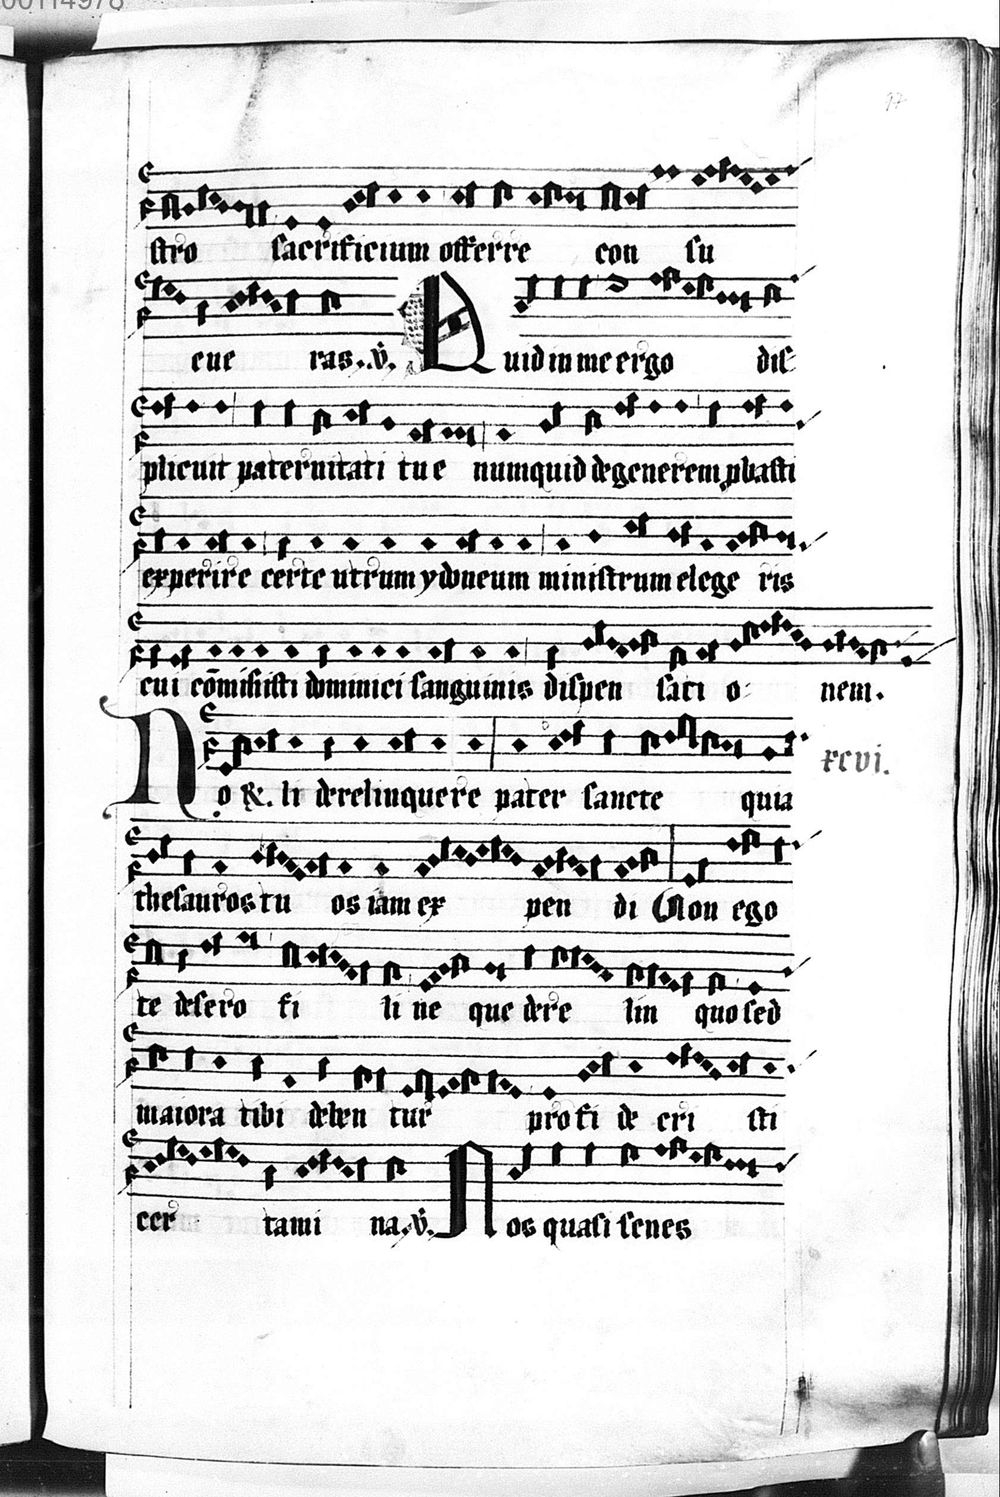 00114978
97
stro sacrificium offerre con su
eue ras. v̇. Quid in me ergo dis
plicuit paternitati tue numquid degenerem pbasti
experire certe utrum ydoneum ministrum elege ris
cui cōmisisti dominici sanguinis dispen sati o nem.
No R. li derelinquere pater sancte quia
xcvi.
thesauros tu os iam ex pen di Non ego
te desero fi li ne que dere lin quo sed
maiora tibi deben tur pro fi de cri sti
cer tami na. v̇. Nos quasi senes